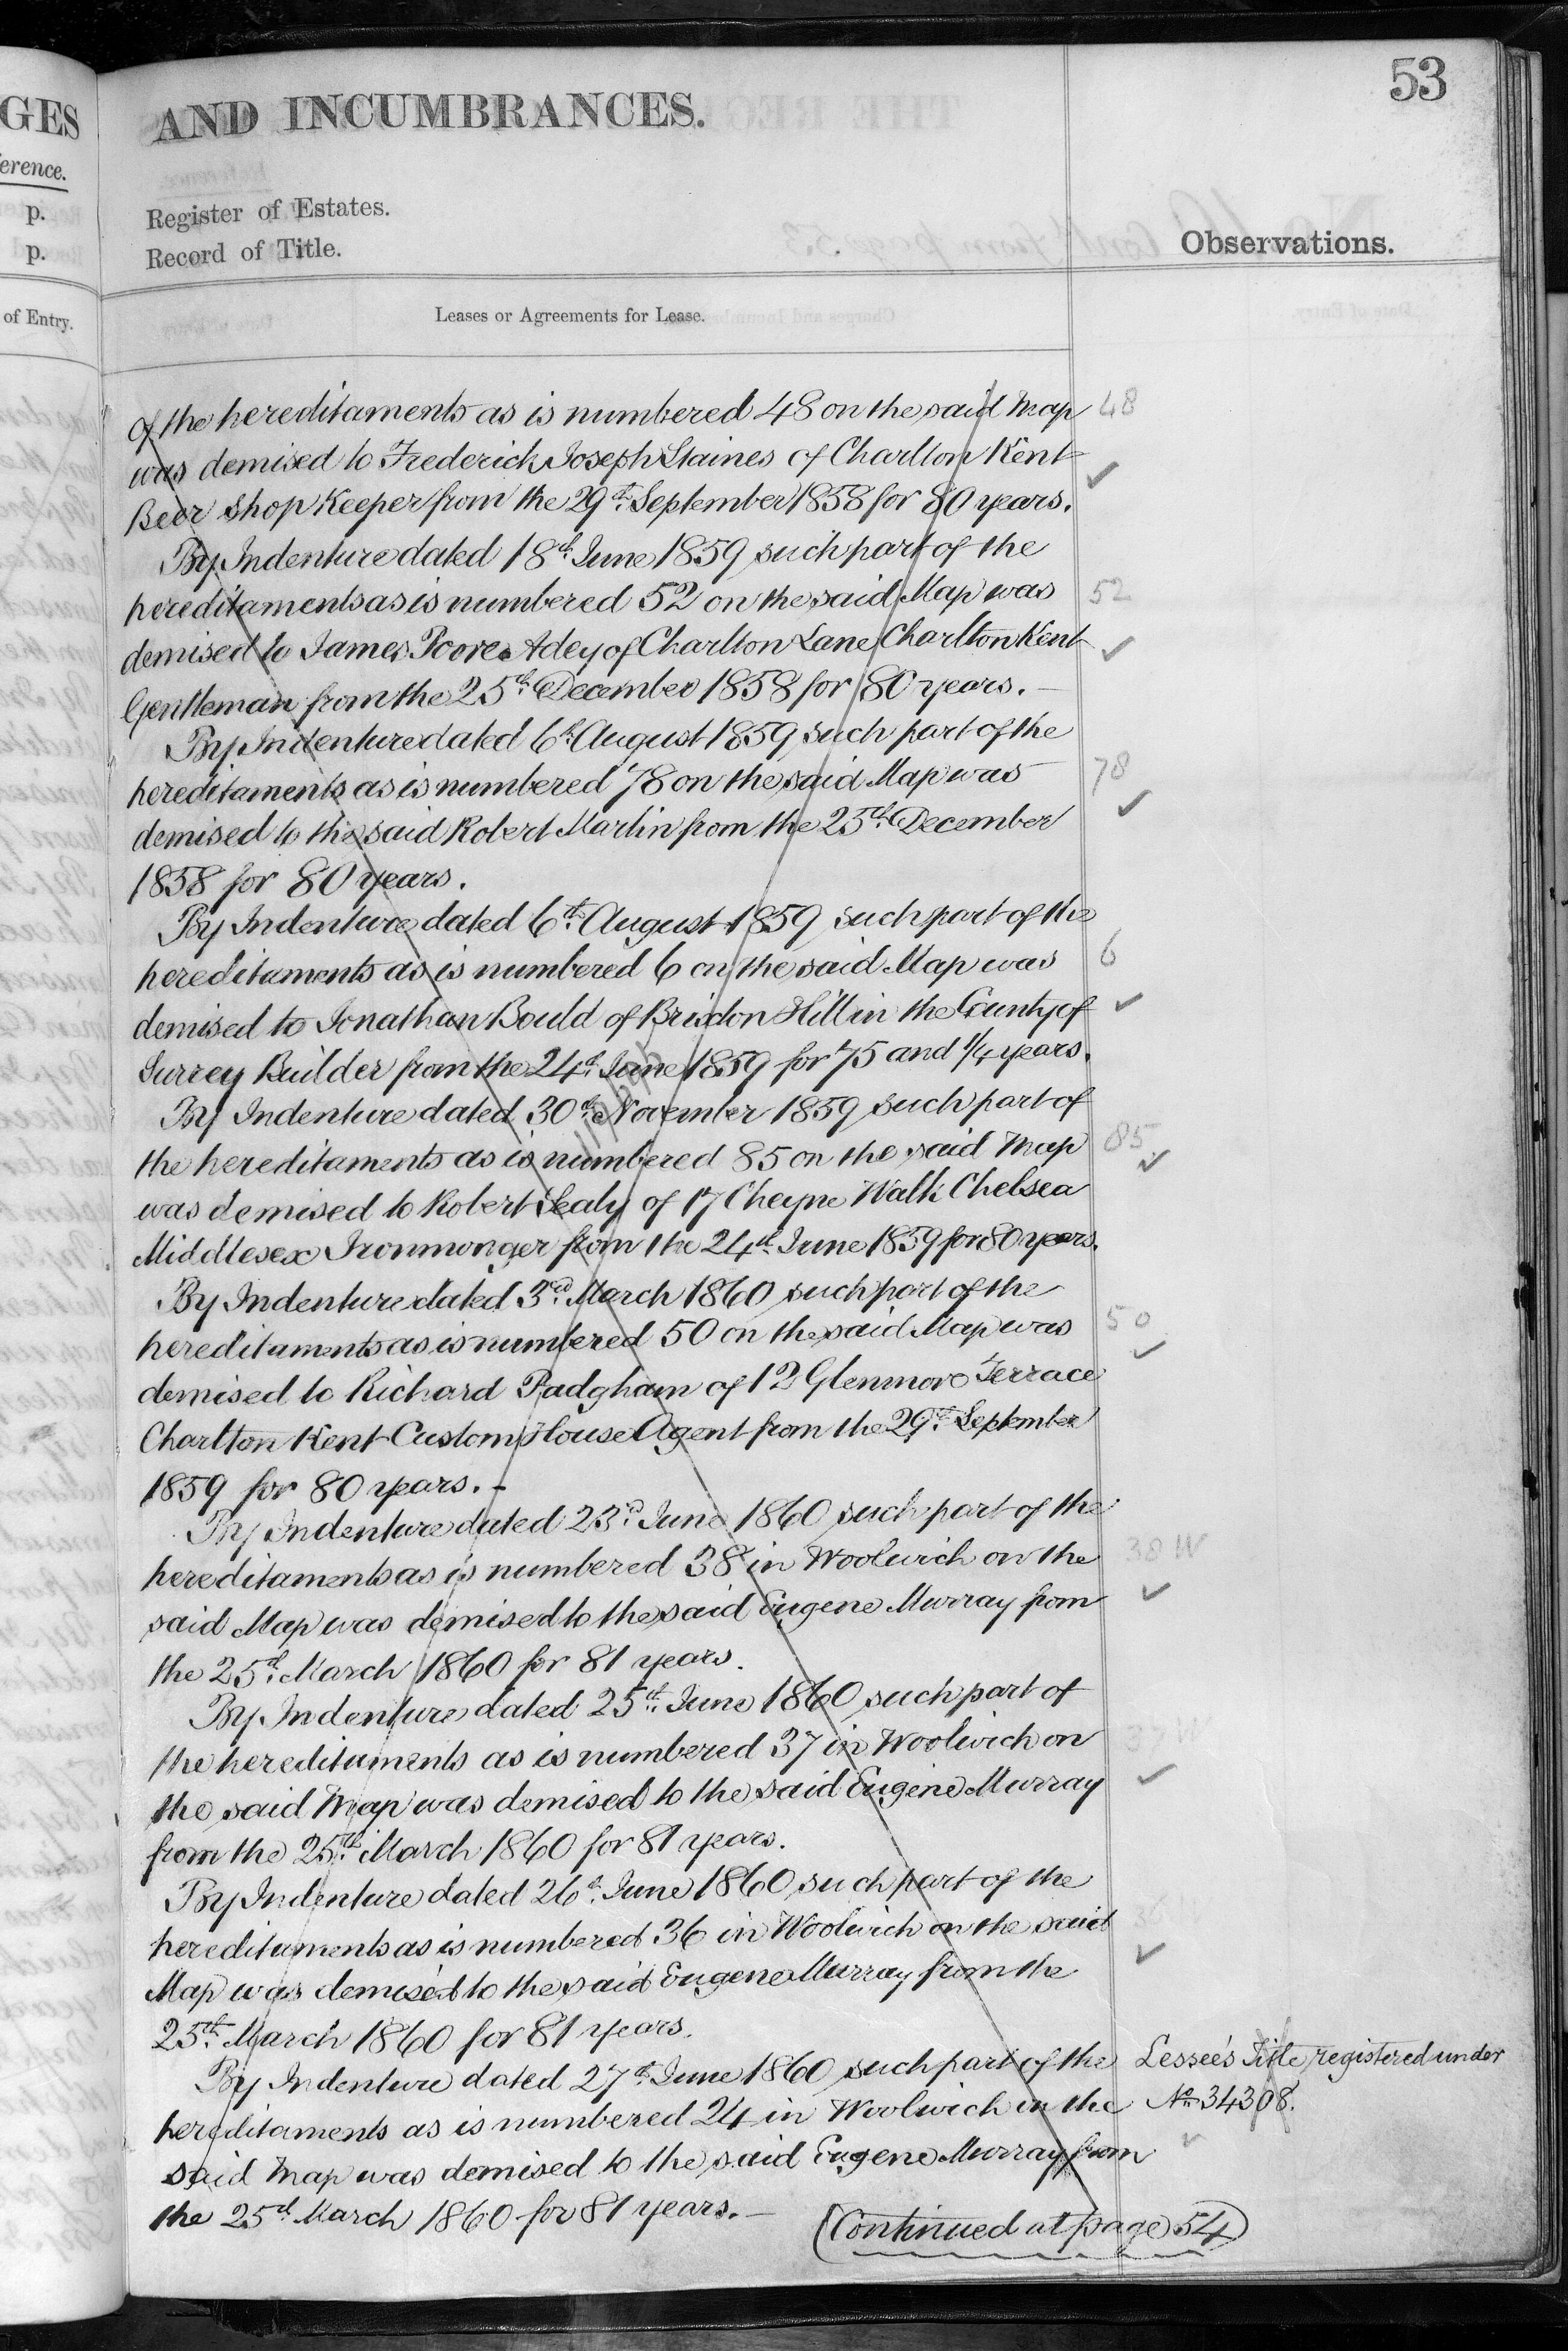 GES
erence.
p.
p.
of Entry.
53
AND INCUMBRANCES.
Register of Estates.
Record of Title.
Observations.
Leases or Agreements for Lease.
of the hereditaments as is numbered 48 on the said Map
48
was demised to Frederick Joseph Staines of Charlton Kent
Beer Shop Keeper from the 29th September 1858 for 80 years.
By Indenture dated 18th June 1859 such part of the
hereditaments as is numbered 52 on the said Map was
52
demised to James Poore Adey of Charlton Lane Charlton Kent
Gentleman from the 25th December 1858 for 80 years. —
By Indenture dated 6th August 1859 such part of the
hereditaments as is numbered 78 on the said Map was
78
demised to the said Robert Martin from the 25th December
1858 for 80 years.
By Indenture dated 6th August 1859 such part of the
hereditaments as is numbered 6 on the said Map was
6
demised to Jonathan Bould of Brixton Hill in the County of
Surrey Builder from the 24th June 1859 for 75 and 1/4 years.
By Indenture dated 30th November 1859 such part of
the hereditaments as is numbered 85 on the said Map
85
was demised to Robert Sealy of 17 Cheyne Walk Chelsea
Middlesex Ironmonger from the 24th June 1859 for 80 years.
By Indenture dated 3rd March 1860 such part of the
hereditaments as is numbered 50 on the said Map was
50
demised to Richard Padgham of 12 Glenmore Terrace
Charlton Kent Custom House Agent from the 29th September
1859 for 80 years. –
By Indenture dated 23rd June 1860 such part of the
hereditaments as is numbered 38 in Woolwich on the
38 W
said Map was demised to the said Eugene Murray from
the 25th March 1860 for 81 years.
By Indenture dated 25th June 1860 such part of
the hereditaments as is numbered 37 in Woolwich on
37 W
the said Map was demised to the said Eugene Murray
from the 25th March 1860 for 81 years.
By Indenture dated 26th June 1860 such part of the
hereditaments as is numbered 36 in Woolwich on the said
Map was demised to the said Eugene Murray from the
25th March 1860 for 81 years.
By Indenture dated 27th June 1860 such part of the
Lessee's Title registered under
hereditaments as is numbered 24 in Woolwich on the
No 34308.
said Map was demised to the said Eugene Murray from
the 25th March 1860 for 81 years. —
(Continued at page 54)